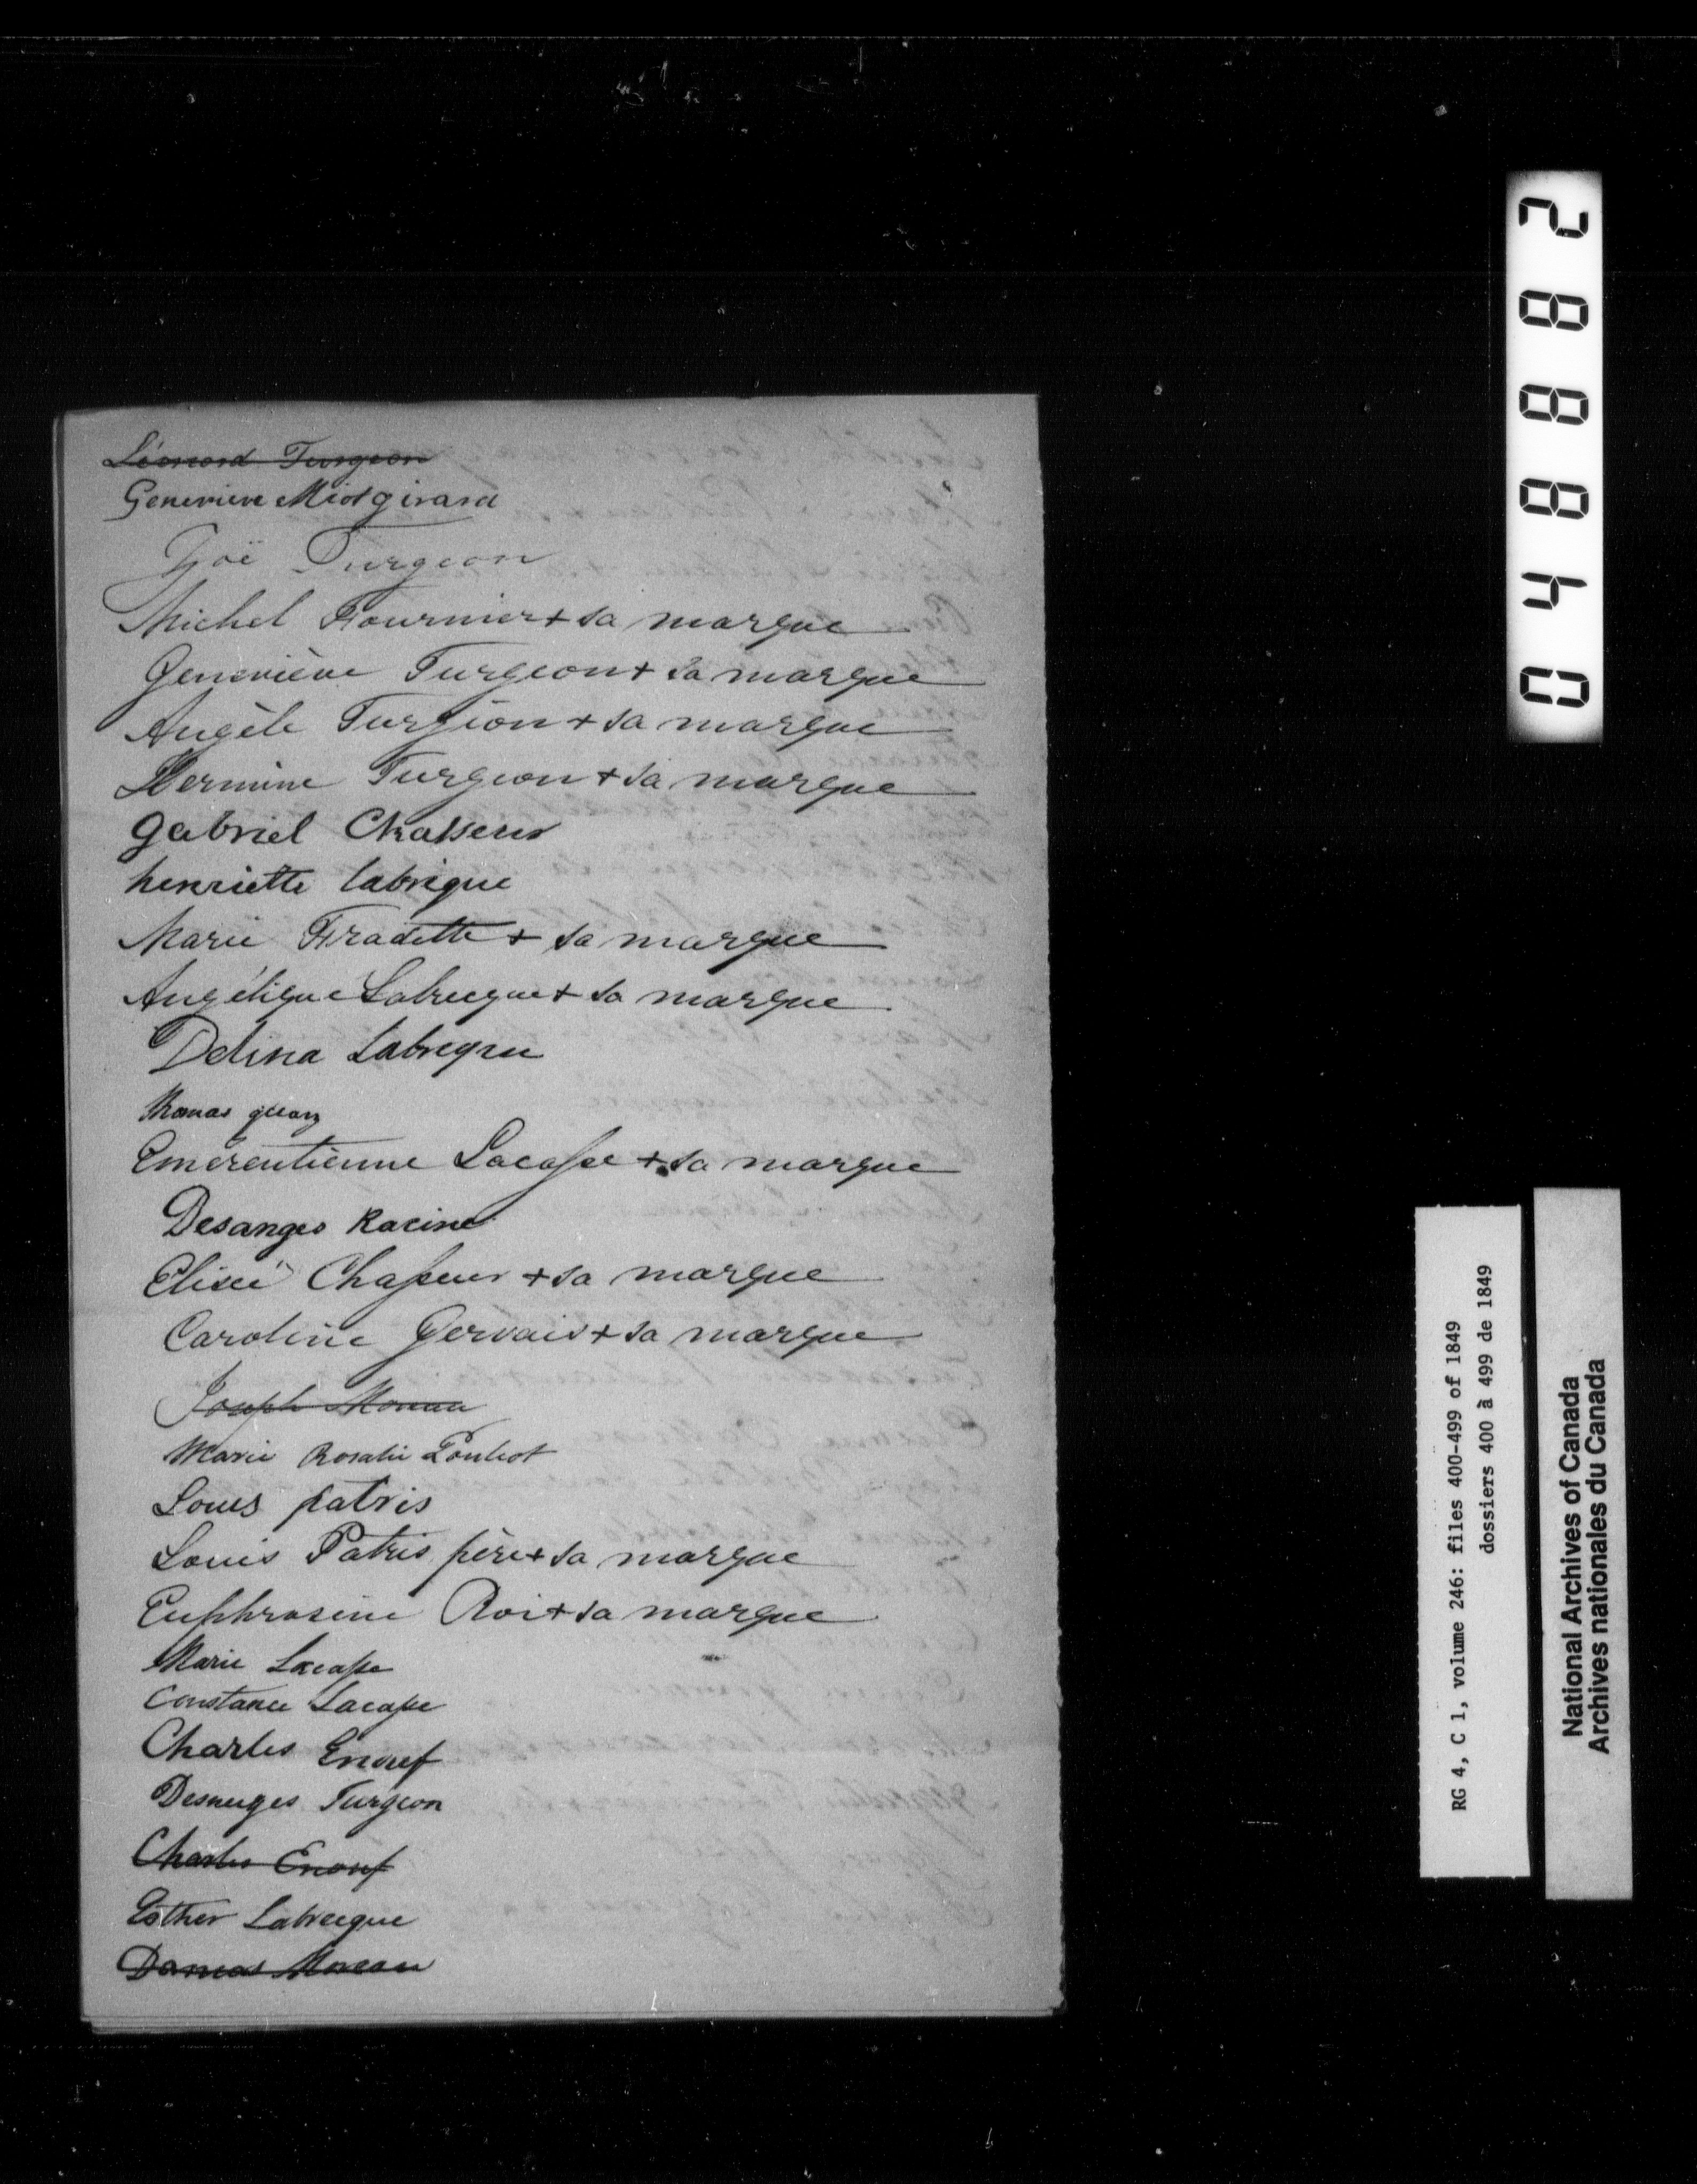 Léonord Turgeon
Genevieve Miotgirard
Zoë Turgeon
Michel Fournier + sa marque
Geneviève Turgeon + sa marque
Angèle Turgeon + sa marque
Hermine Turgeon + sa marque
gabriel Chasseur
henriette labrique
Marie Fradette + sa marque
Angélique Labrecque + sa marque
Delina Labreque
Thomas
Emerentienne Lacasse + sa marque
Desanges Racine
Elisée Chasseur + sa marque
Caroline Gervais + sa marque
Joseph Moreau
Marie Rosalie Pouliot
Louis patris
Louis Patris père + sa marque
Euphrosine Roi + sa marque
Marie Lacasse
Constance Lacasse
Charles Enouf
Desneiges Turgeon
Charles Enouf
Esther Labrecque
Damas Moreau
04882
RG 4, C 1, volume 246: files 400-499 of 1849
dossiers 400 à 499 de 1849
National Archives of Canada
Archives nationales du Canada